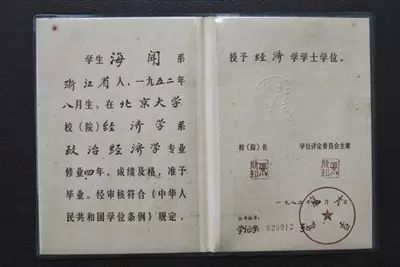 学生 海闻 系
浙江省人，一九五二年
八月生。在 北京大学
校（院）经济学 系
政治经济学 专业
修业四年，成绩及格，准予
毕业。经审核符合《中华人
民共和国学位条例》规定，
授予 经济 学学士学位。
校（院）长 学位评定委员会主席
一九八二年 月 日
证书编号：
820912